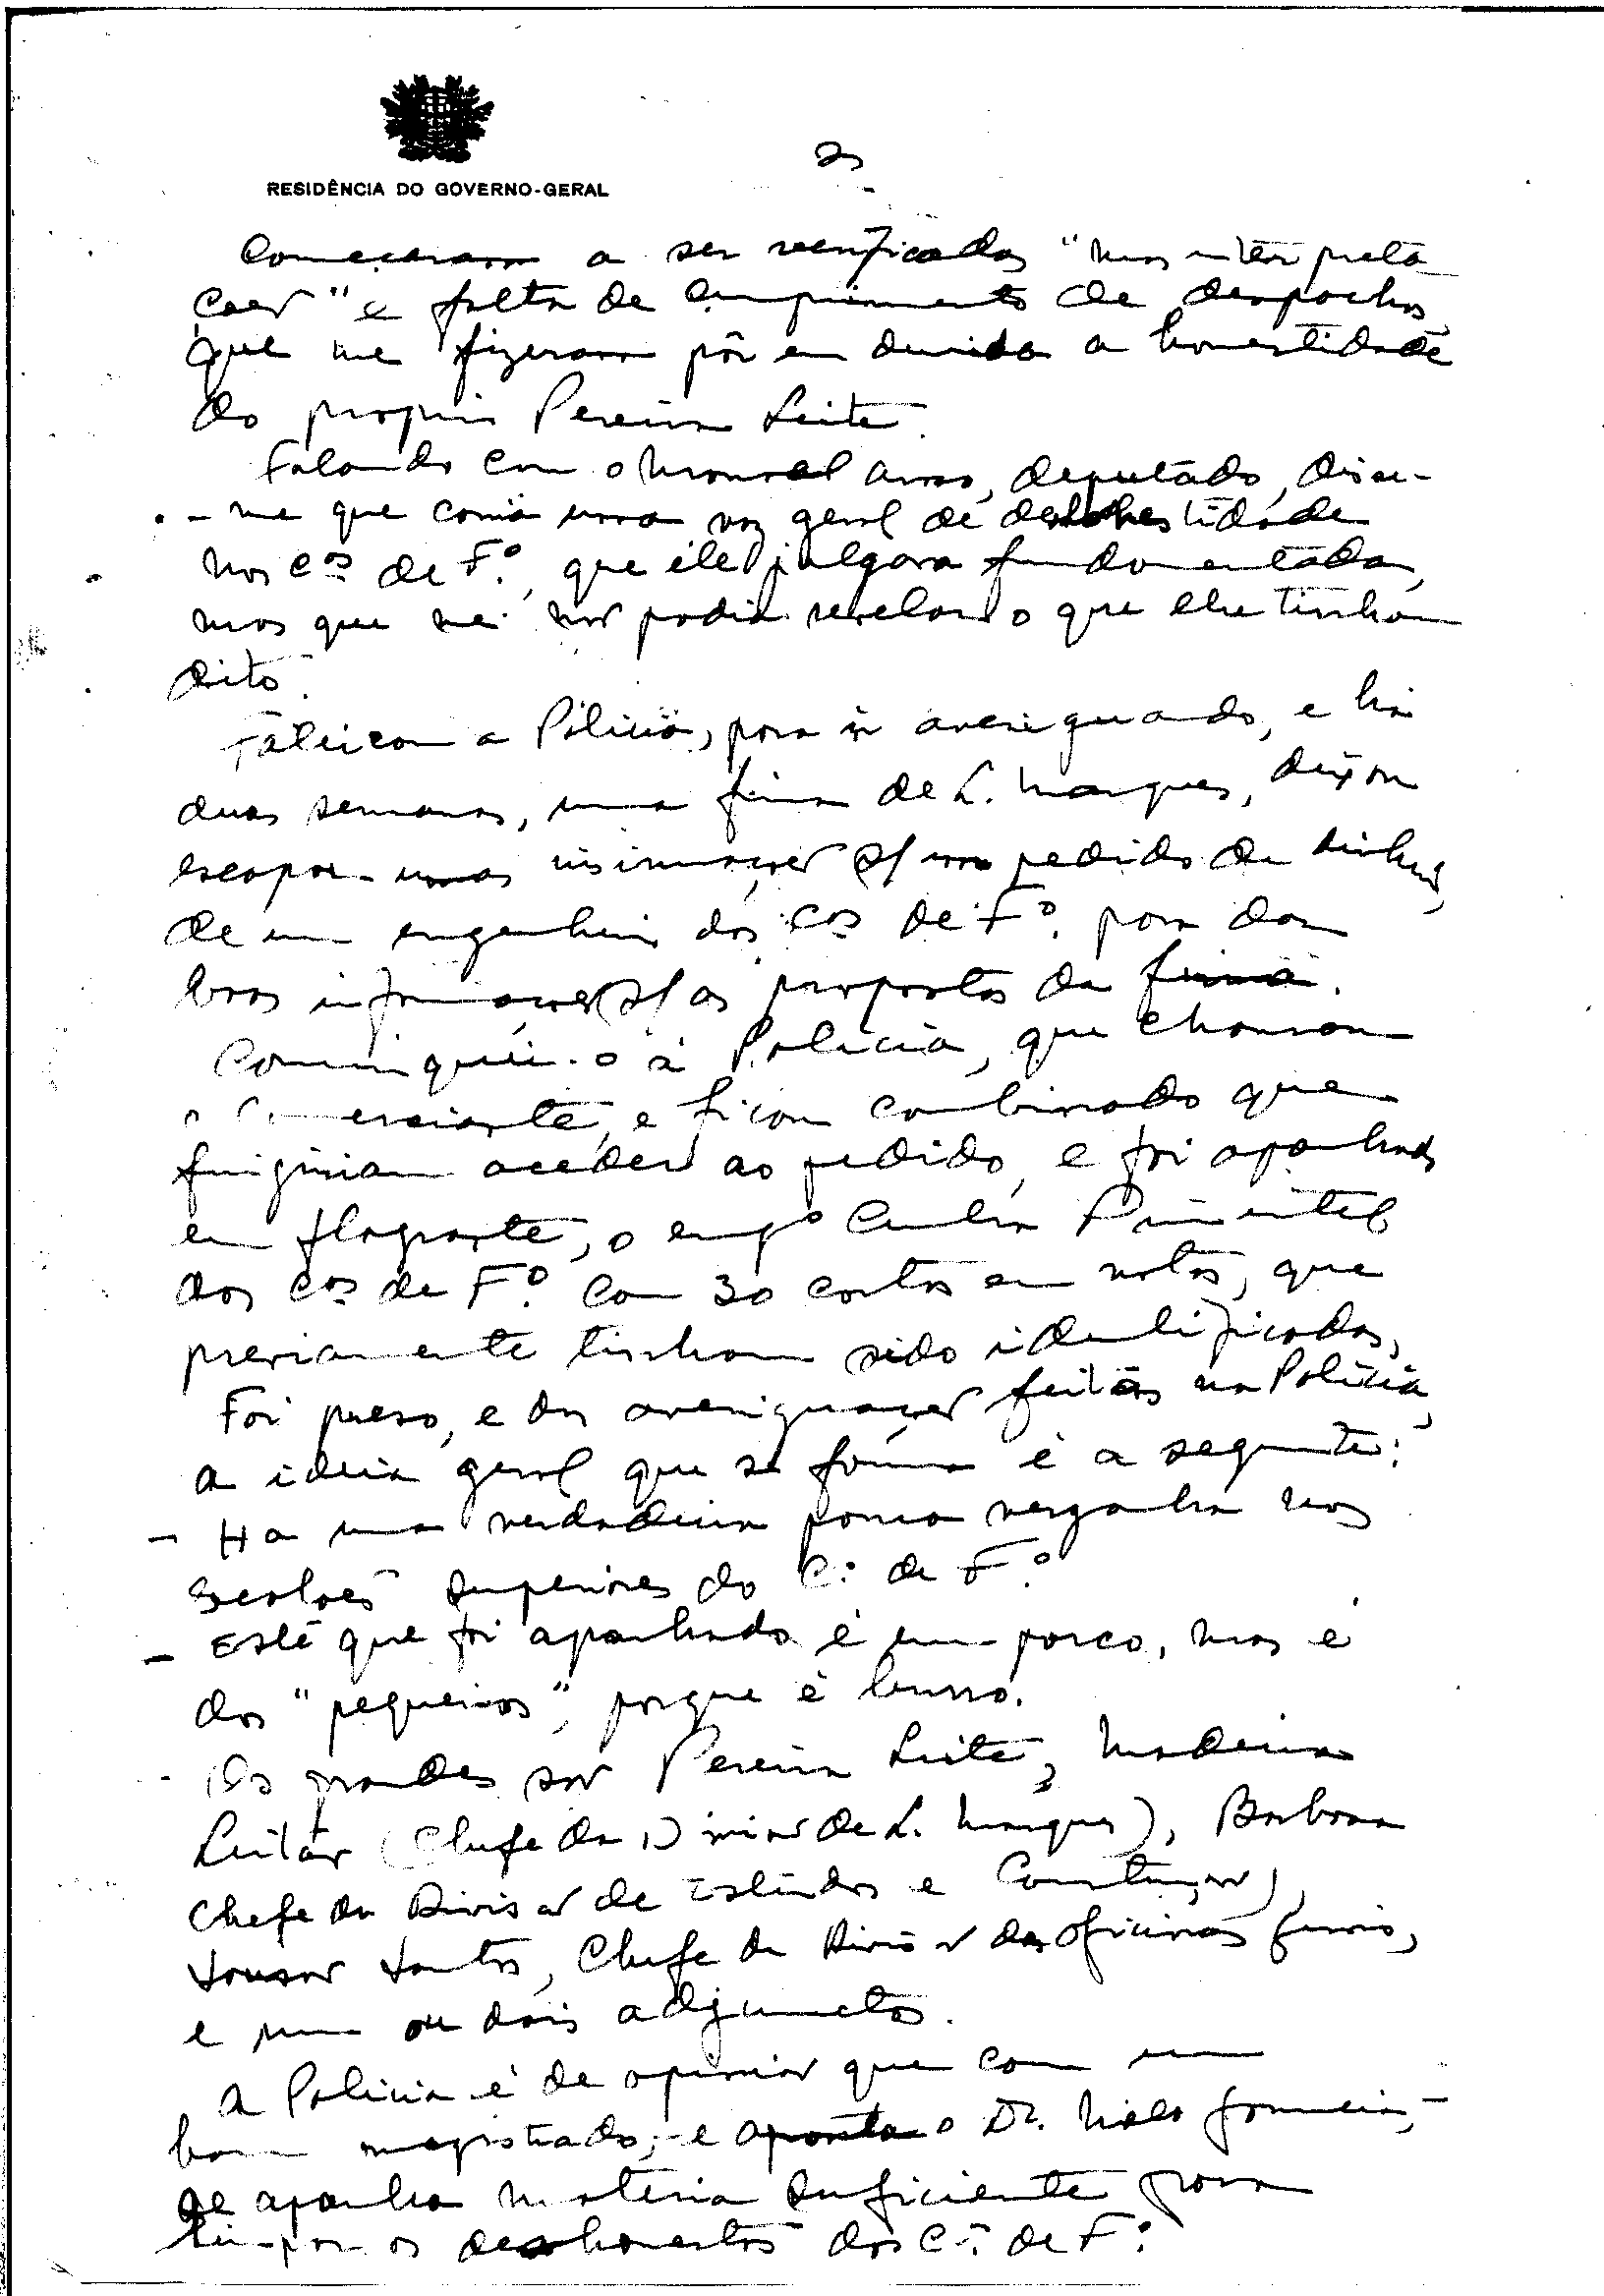 RESIDÊNCIA DO GOVERNO-GERAL
2
Começaram a ser verificadas "mas interpreta
ções" e falta de cumprimento de despachos
que me fizeram pôr em duvida a honestidade
do proprio Pereira Leite.
Falando com o Manuel deputado, disse-
-me que corria uma voz geral de deshonestidade
nos C.os de F.º, que ele julgava fundamentada,
mas que me não podia revelar o que lhe tinham
dito.
a Policia, para ir averiguando, e há
duas semanas, uma firma de L. Marques, deixou
escapar umas insinuações s/ um pedido de dinheiro,
de um engenheiro dos C.os de F.º, para dar
boas informações s/ as propostas da firma.
Comuniquei-o à Policia, que chamou
o Comerciante, e ficou combinado que
fingiriam aceder ao pedido, e foi apanhado
em flagrante, o eng.º Cunha Pimentel
dos C.os de F.º com 30 contos em notas, que
previamente tinham sido identificadas.
Foi preso, e das averiguações feitas na Policia,
a ideia geral que se forma é a seguinte:
- Ha uma verdadeira pouca vergonha nos
escalões superiores do C.º de F.º
- Este que foi apanhado é um porco, mas é
dos "pequenos", porque é burro.
- Os grandes são Pereira Leite, Madeira
Leitão (Chefe da Divisão de L. Marques), Barbosa
Chefe da Divisão de Estudos e Construção),
Santos, Chefe da Divisão das oficinas gerais,
e um ou dois adjuntos.
A Policia é de opinião que com um
bom magistrado, - e aponta o Dr. -
se apanha materia suficiente para
limpar os deshonestos dos C.os de F.º